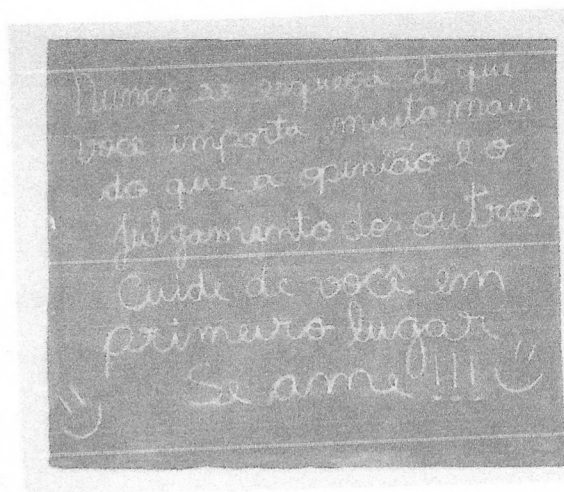 Nunca se esqueça de que
você importa muito mais
do que a opinião e o
julgamento dos outros
Cuide de você em
primeiro lugar
Se ame!!!